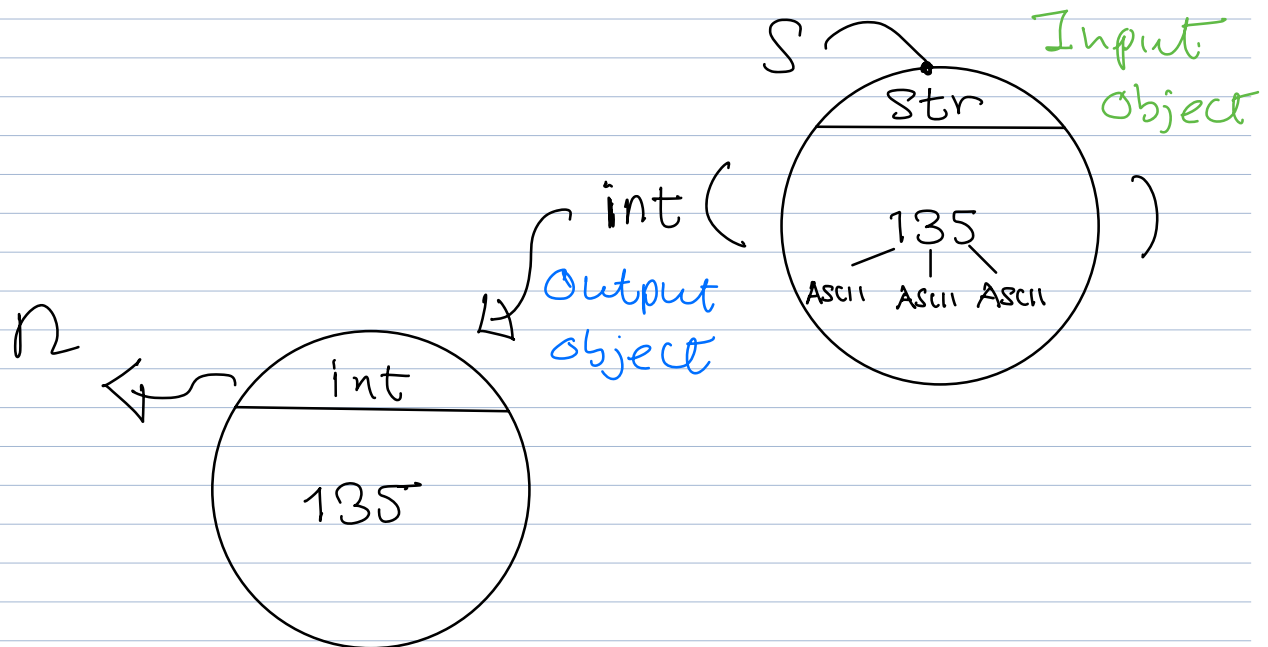 S
Input
Object
Str
int ( )
135
ASCII ASCII ASCII
Output
object
n
int
135